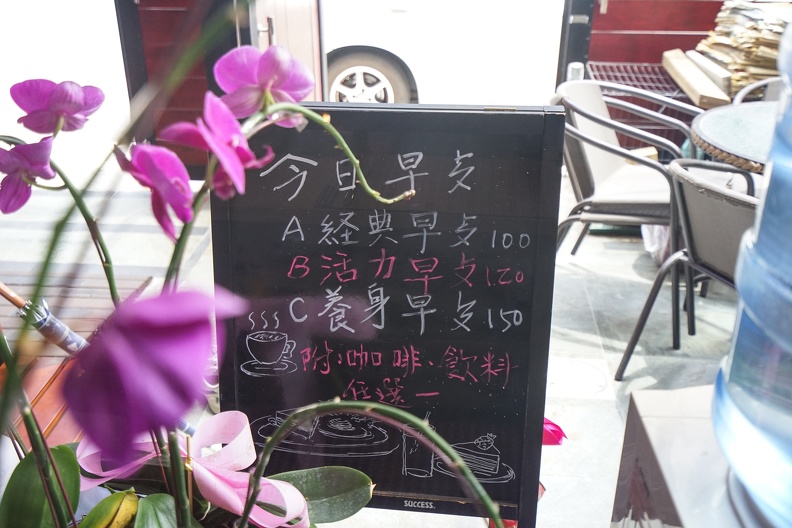 今日早攴
A 経典早攴 100
B 活力早攴 120
C 養身早攴 150
附:咖啡、飲料
任選一
SUCCESS.